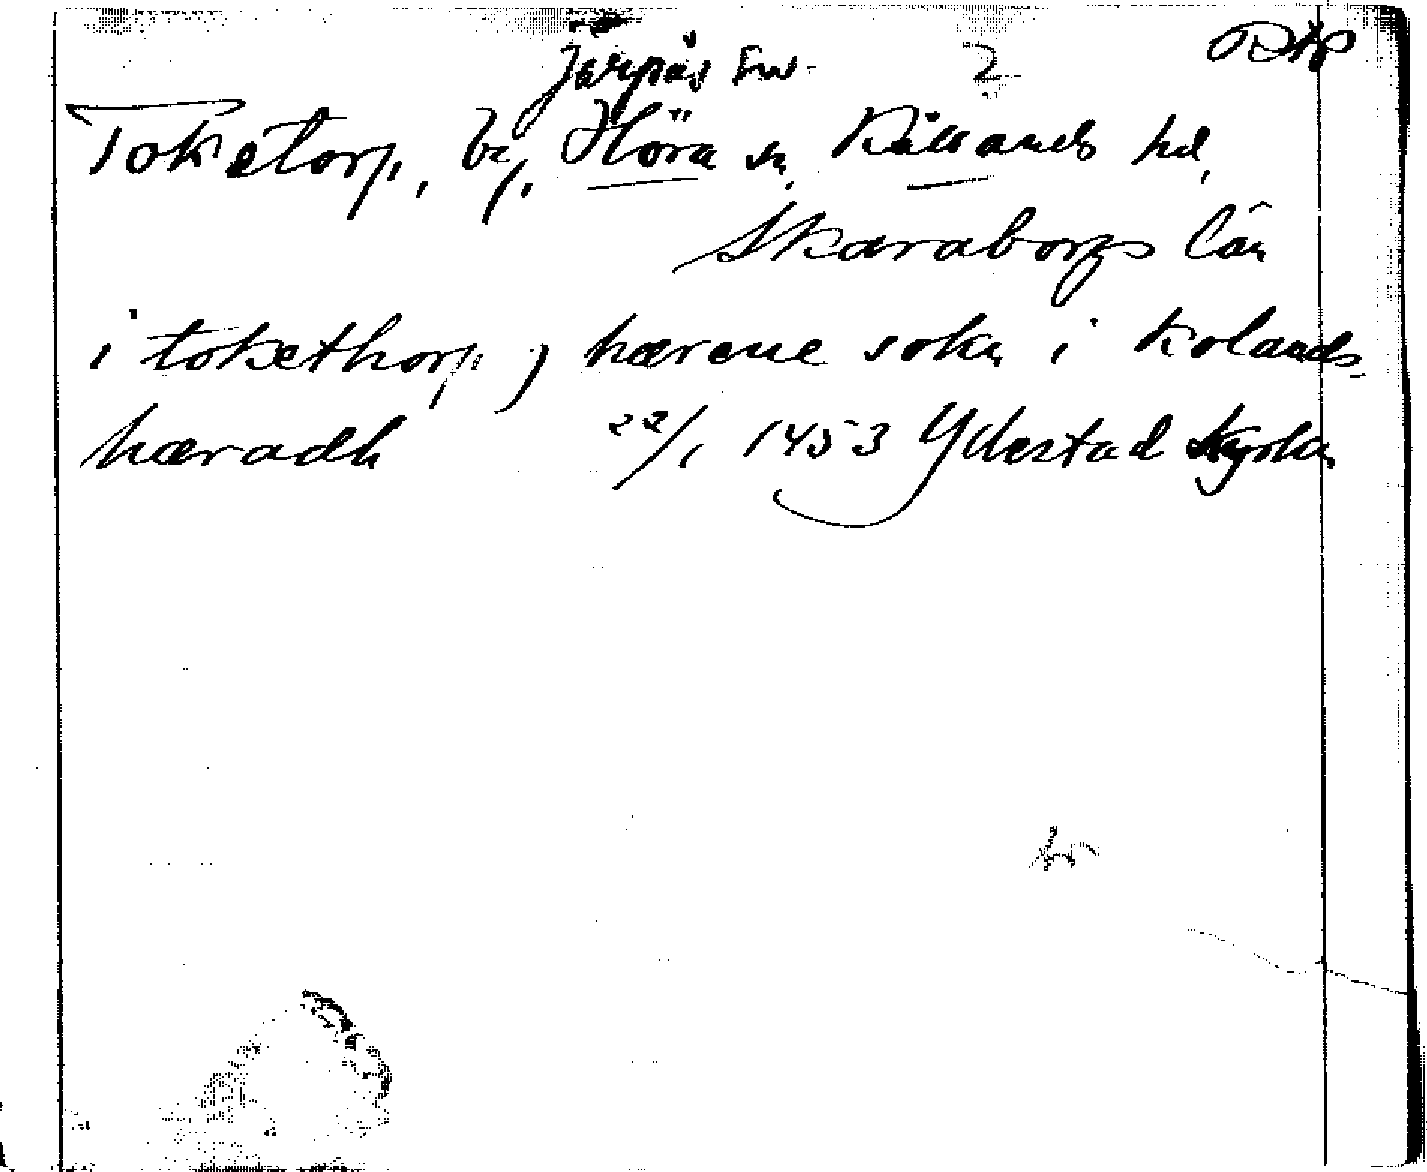 Järpås sn 2
Toketorp, by, Höra sn, Kållands hd,
Skaraborgs län
i tokethorp, hærene sokn i kolands
hæradh 22/1 1453 Ydestad kyrka